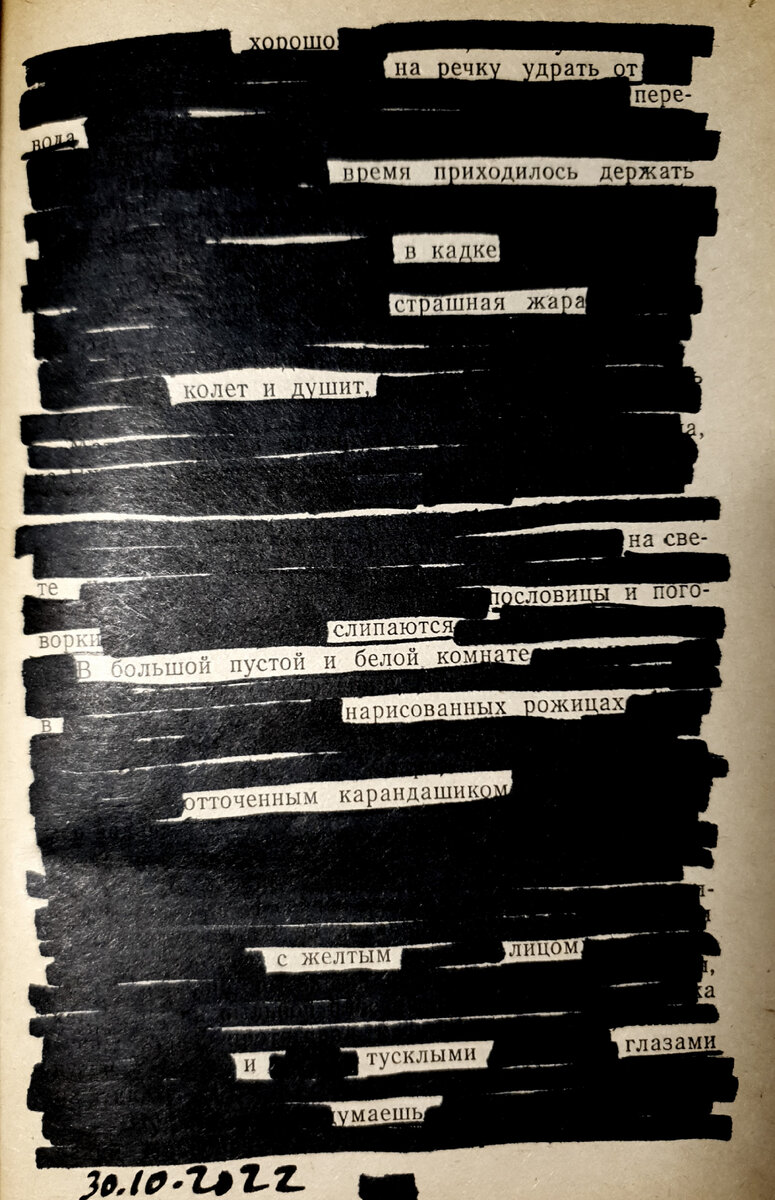 хорошо
на речку удрать от
пере-
вода
время приходилось держать
в кадке
страшная жара
колет и душит,
на све-
те пословицы и пого-
ворки слипаются
В большой пустой и белой комнате
в нарисованных рожицах
отточенным карандашиком
с желтым лицом
и тусклыми глазами
думаешь
30.10.2022